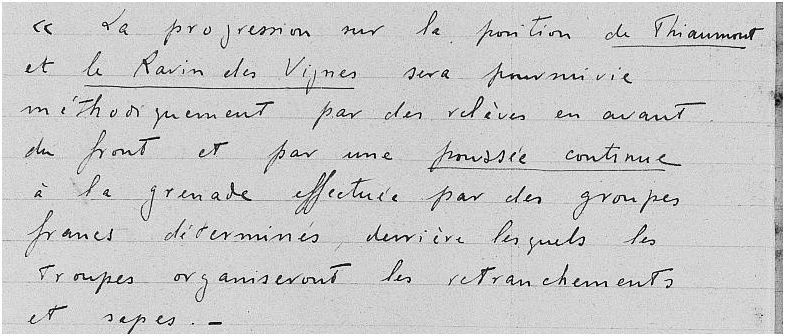 « La progression sur la position de Thiaumont
et le Ravin des Vignes sera poursuivie
méthodiquement par des relèves en avant
du front et par une poussée continue
à la grenade effectuée par des groupes
francs déterminés, derrière lesquels les
Troupes organiseront les retranchements
et sapes. –